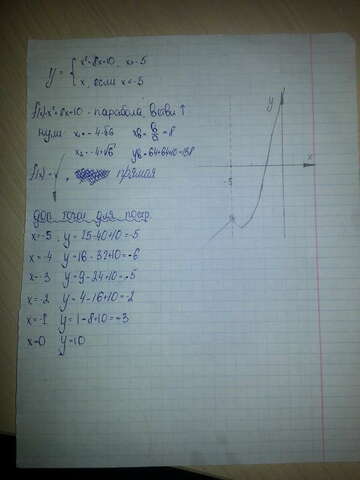 y = { x²+8x+10, x≥-5
x, если x<-5
f(x)=x²+8x+10 - парабола, ветви ↑
нули x₁=-4-√6 xв= =-8
x₂=-4+√6 yв=64+64+10=138
f(x)=x, прямая
доп. точки для постр.
x=-5, y=25-40+10=-5
x=-4 y=16-32+10=-6
x=-3 y=9-24+10=-5
x=-2 y=4-16+10=-2
x=-1 y=1-8+10=-3
x=0 y=10
y
x
-5